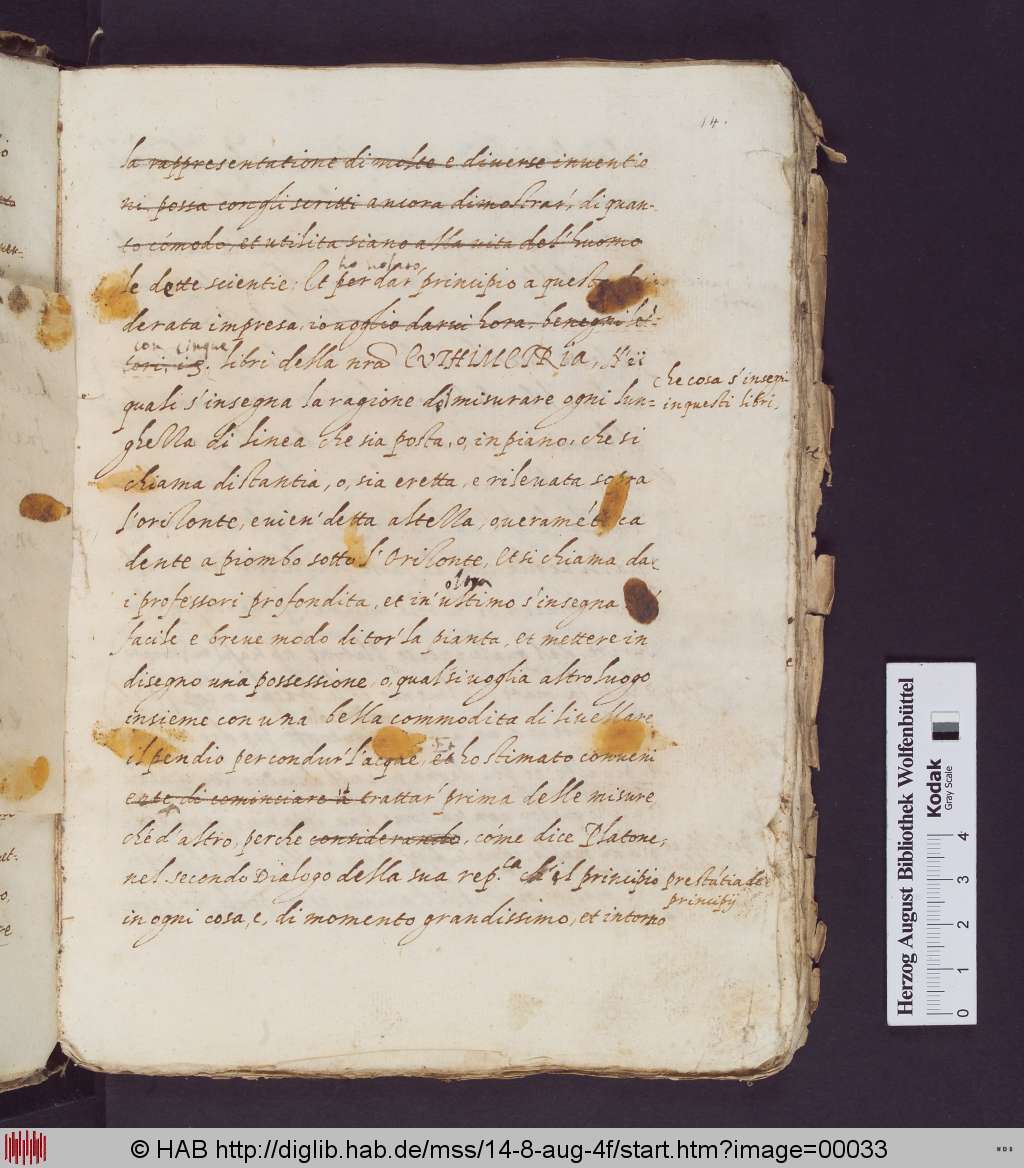 14.
la rappresentatione di molte e diverse inventio
ni possa con gli scritti ancora dimostrar', di quan-
to cómodo, et utilita siano alla vita del'huomo
le dette scientie: Et per dar' principio a questa
derata impresa, io voglio darvi hora, benegni let-
con cinque
tori, i 5. libri della nrã EVTHIMETRIA, N'ei
che cosa s'insegni
in questi libri.
quali s'insegna la ragione di misurare ogni lun=
ghezza di linea che sia posta, o, in piano, che si
chiama distantia, o, sia eretta, e rilevata sopra
l'orizonte, e vien' detta altezza, overaméte ca
dente a piombo sotto l'Orizonte, Et si chiama da
i professori profondita, et in' ultimo s'insegna
facile e breve modo di tor' la pianta, et mettere in
disegno una possessione, o, qual si voglia altro luogo
insieme con una bella commodita di livellare
il pendio per condur' l'acque, et ho stimato conveni
ente di cominciare à trattar' prima delle misure
ché d'altro, perche considerando, cóme dice Platone,
nel secondo Dialogo della sua rep.ca ch'el principio
prestátia de
principij
in ogni cosa, e, di momento grandissimo, et intorno
Herzog August Bibliothek Wolfenbüttel
Kodak
Gray Scale
0 1 2 3 4
© HAB http://diglib.hab.de/mss/14-8-aug-4f/start.htm?image=00033